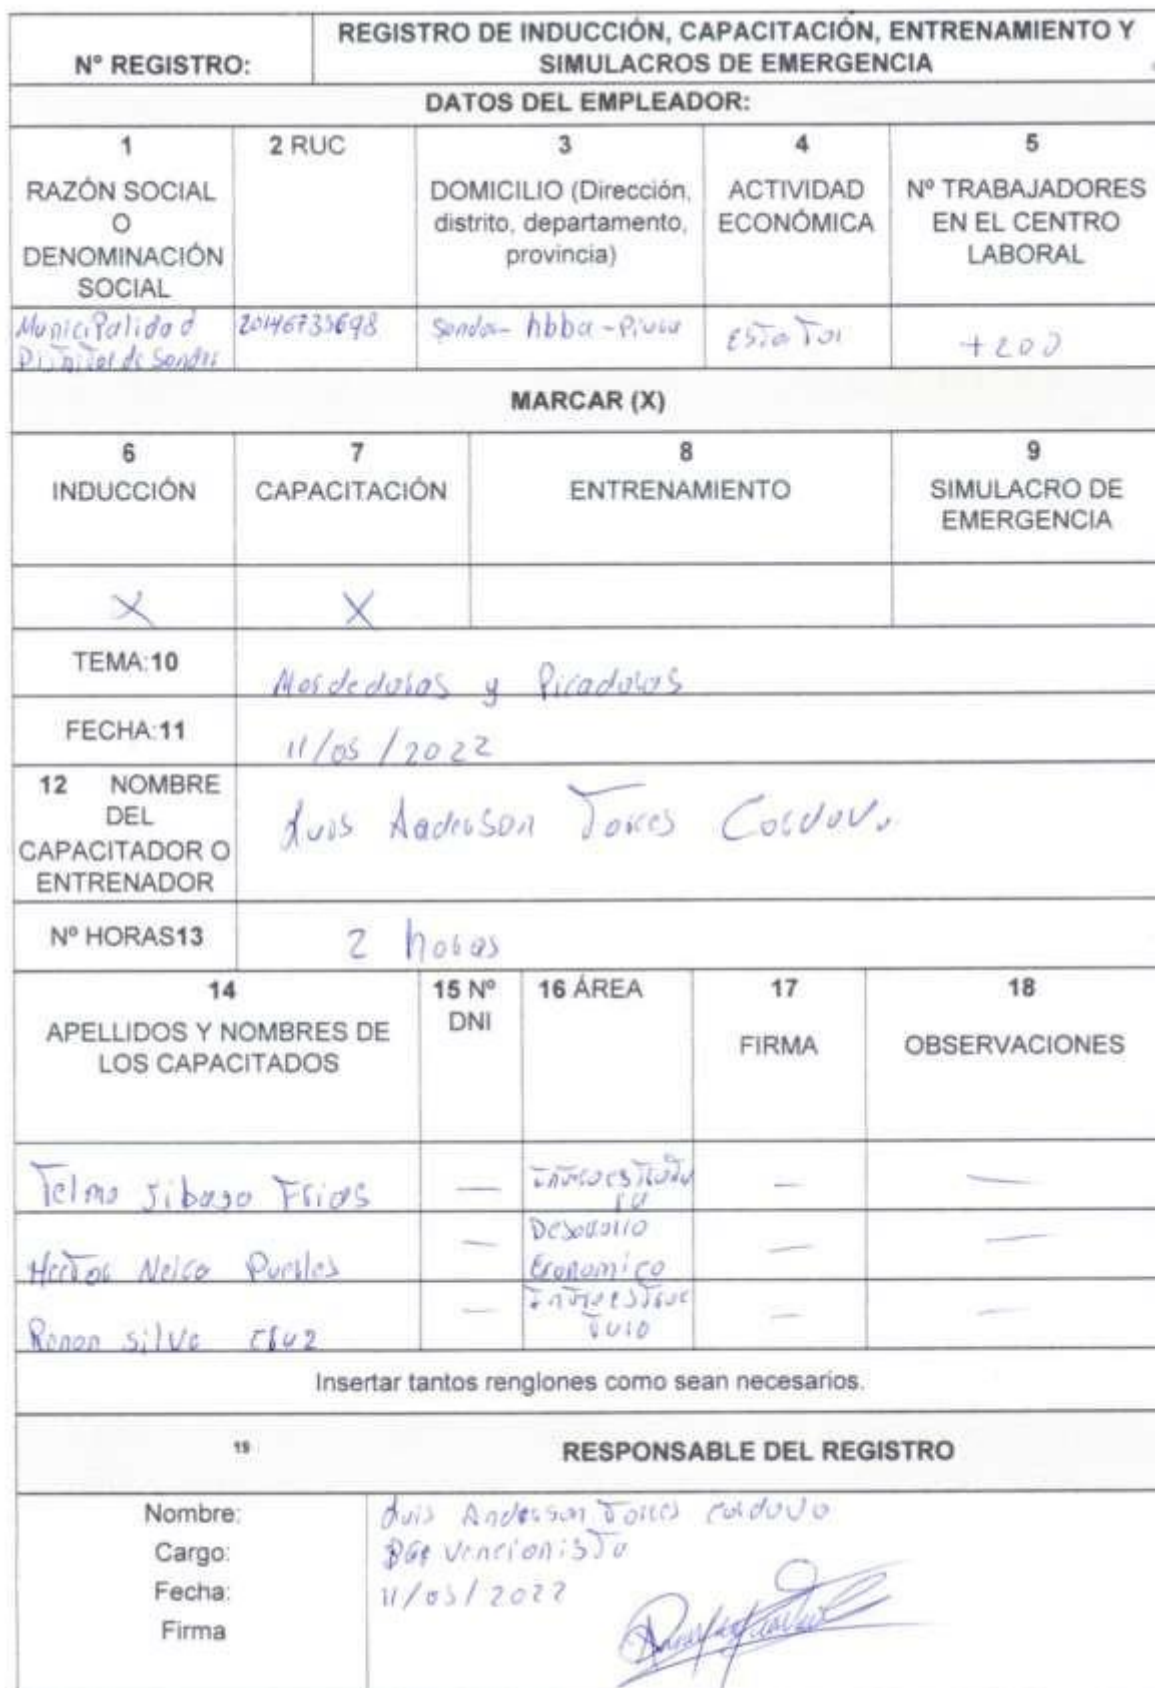 Nº REGISTRO:
REGISTRO DE INDUCCIÓN, CAPACITACIÓN, ENTRENAMIENTO Y
SIMULACROS DE EMERGENCIA
DATOS DEL EMPLEADOR:
1
RAZÓN SOCIAL
O
DENOMINACIÓN
SOCIAL
2 RUC
3
DOMICILIO (Dirección,
distrito, departamento,
provincia)
4
ACTIVIDAD
ECONÓMICA
5
Nº TRABAJADORES
EN EL CENTRO
LABORAL
Municipalidad
Distrital de Sondor
Sondor - hbba - Piura
Estatal
+200
MARCAR (X)
6
INDUCCIÓN
7
CAPACITACIÓN
8
ENTRENAMIENTO
9
SIMULACRO DE
EMERGENCIA
X
X
TEMA:10
Mordeduras y Picaduras
FECHA:11
11/05/2022
12 NOMBRE
DEL
CAPACITADOR O
ENTRENADOR
Luis Anderson Torres Cordova
Nº HORAS13
2 horas
14
APELLIDOS Y NOMBRES DE
LOS CAPACITADOS
15 Nº
DNI
16 ÁREA
17
FIRMA
18
OBSERVACIONES
Telmo Jibaja Frias
—
Infraestructu
ra
—
—
Hector Neira
—
Desarrollo
Economico
—
—
Silva Cruz
—
Infraestruc
tura
—
—
Insertar tantos renglones como sean necesarios.
19
RESPONSABLE DEL REGISTRO
Nombre:
Luis Anderson Torres Cordova
Cargo:
Prevencionista
Fecha:
11/05/2022
Firma